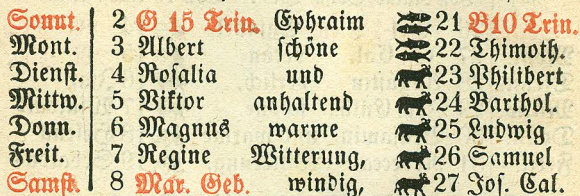 Sonnt. 2 G 15 Trin. Ephraim 21 B10 Trin.
Mont. 3 Albert schöne 22 Thimoth.
Dienst. 4 Rosalia und 23 Philibert
Mittw. 5 Viktor anhaltend 24 Barthol.
Donn. 6 Magnus warme 25 Ludwig
Freit. 7 Regine Witterung, 26 Samuel
Samst. 8 Mar. Geb. windig, 27 Jos. Cal.